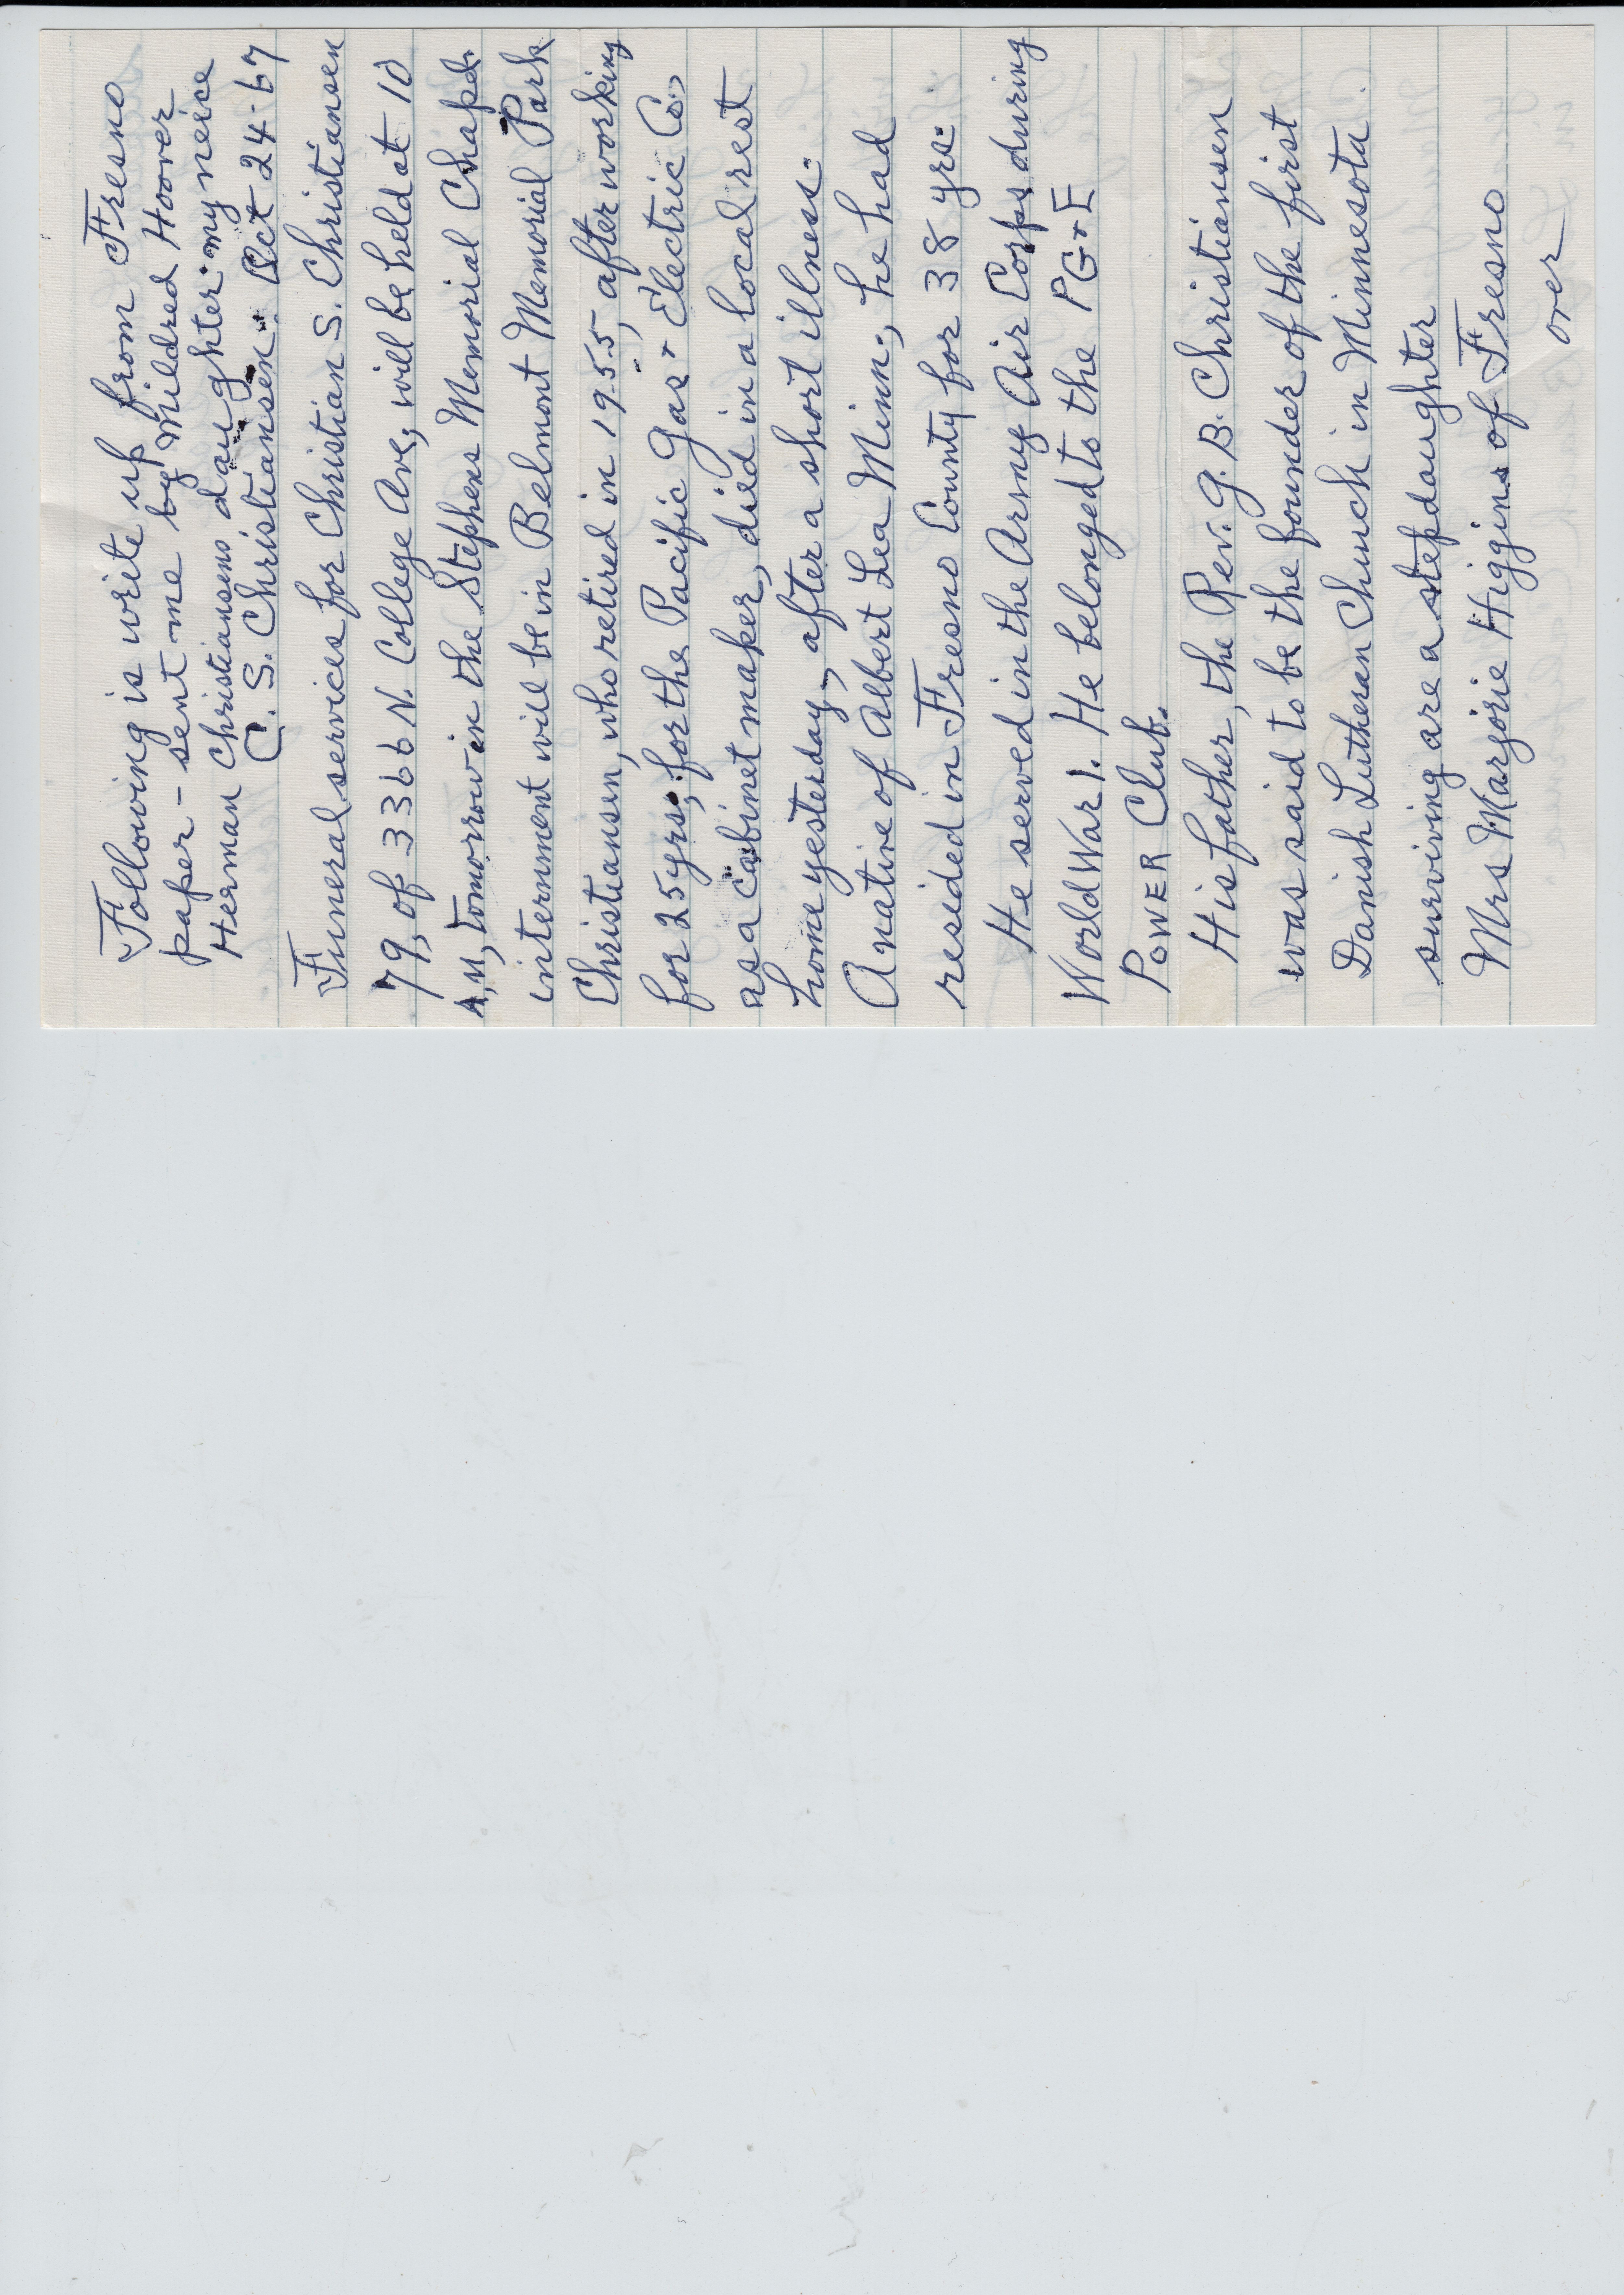 Following is write up from Fresno
paper - sent me by Mildred Hoover
Herman Christiansens daughter - my neice
C. S. Christiansen. Oct 24-67
Funeral services for Christian S. Christiansen
79, of 3366 N. College Ave, will be held at 10
A,M, tomorrow in the Stephens Memorial Chapel.
internment will be in Belmont Memorial Park
Christiansen, who retired in 1955, after working
for 25 yrs, for the Pacific Gas + Electric Co,
as a cabinet maker, died in a local rest
home yesterday, after a short illness.
A native of Albert Lea Minn., he had
resided in Fresno County for 38 yrs.
He served in the Army Air Corps during
World War 1. He belonged to the PG+E
POWER Club.
His father, the Rev. G. B. Christiansen
was said to be the founder of the first
Danish Lutheran Church in Minnesota.
surviving are a stepdaughter
Mrs Marjorie Higgins of Fresno
over